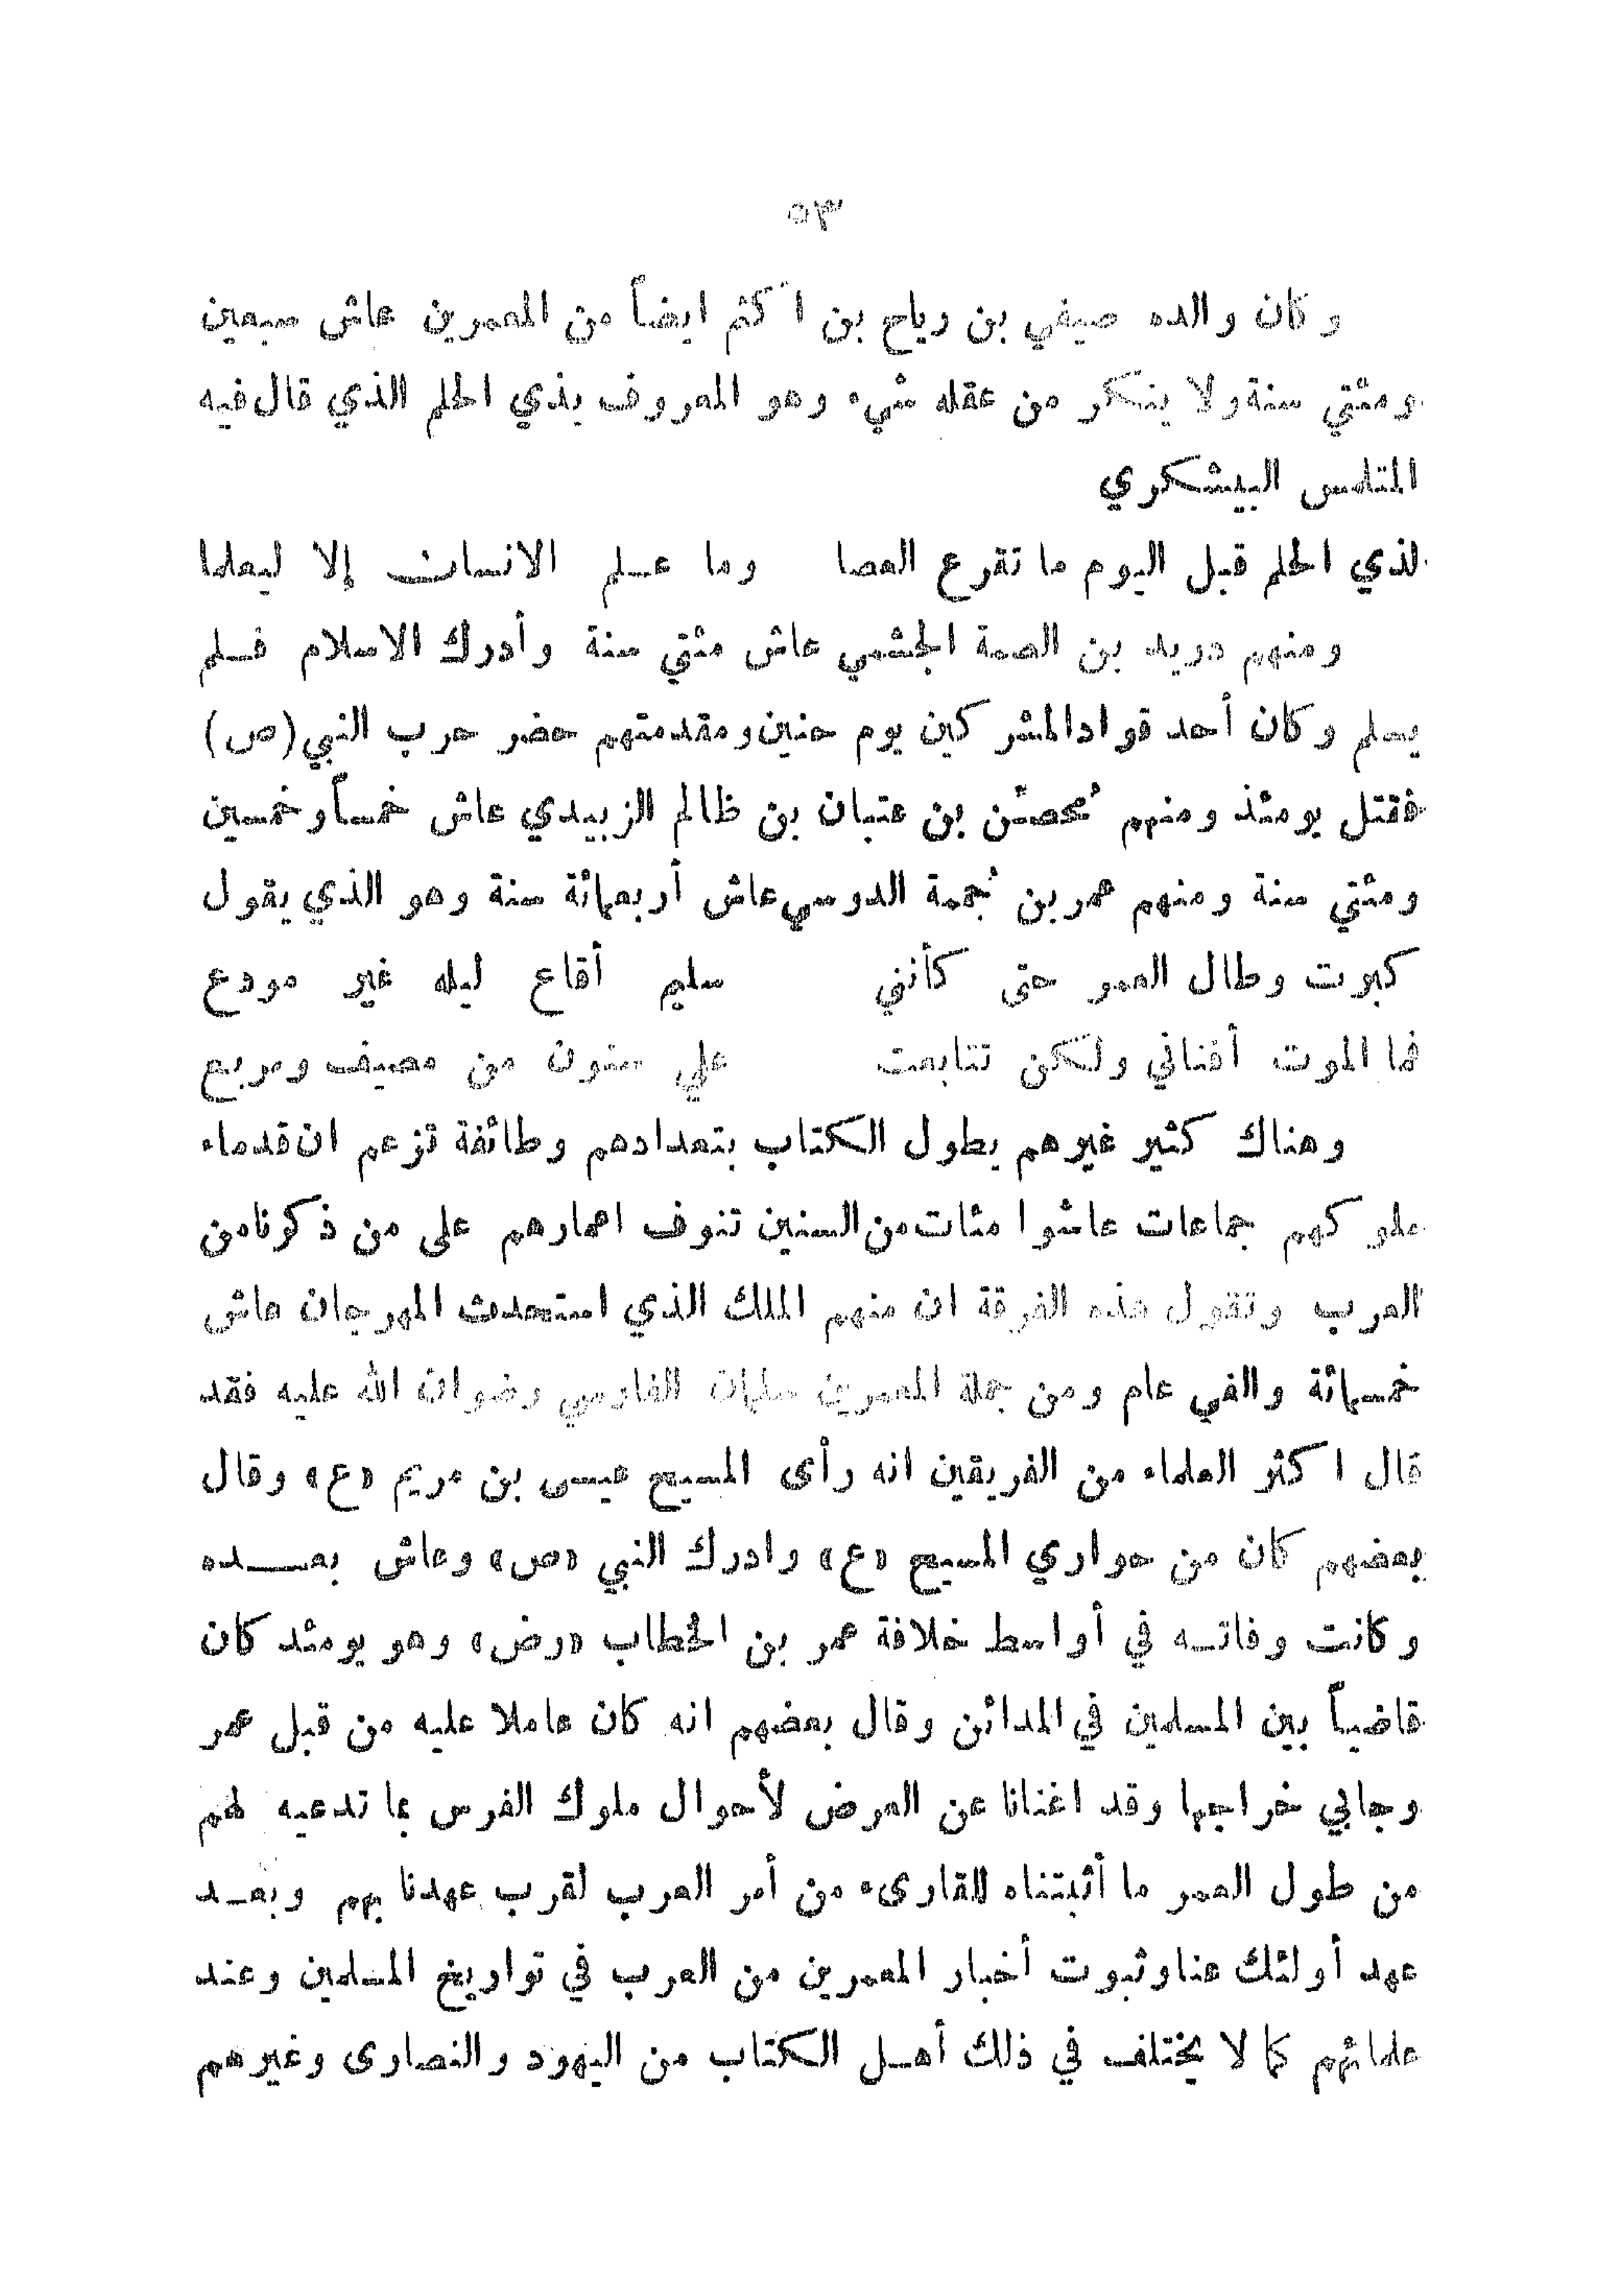 ٥٣
وكان والده صيفي بن رياح بن اكثم ايضاً من المعمرين عاش سبعين
ومئتي سنة ولا ينكر من عقله شيء وهو المعروف بذي الحلم الذي قال فيه
المتلمس اليشكري
لذي الحلم قبل اليوم ما تقرع العصا وما علم الانسان إلا ليعلما
ومنهم دريد بن الصمة الجشمي عاش مئتي سنة وأدرك الاسلام فلم
يسلم وكان أحد قواد المشركين يوم حنين ومقدمتهم حضر حرب النبي (ص)
فقتل يومئذ ومنهم مُحصّن بن عتبان بن ظالم الزبيدي عاش خمساً وخمسين
ومئتي سنة ومنهم عمر بن حُممة الدوسي عاش أربعمائة سنة وهو الذي يقول
كبرت وطال العمر حتى كأنني سليم أقاع ليله غير مودع
فما الموت أفناني ولكن تتابعت علي سنون من مصيف ومربع
وهناك كثير غيرهم يطول الكتاب بتعدادهم وطائفة تزعم ان قدماء
ملوكهم جماعات عاشوا مئات من السنين تنوف اعمارهم على من ذكرنا من
العرب وتقول هذه الفرقة ان منهم الملك الذي استحدث المهرجان عاش
خمسمائة والفي عام ومن جملة المعمرين سلمان الفارسي رضوان الله عليه فقد
قال اكثر العلماء من الفريقين انه رأى المسيح عيسى بن مريم «ع» وقال
بعضهم كان من حواري المسيح «ع» وادرك النبي «ص» وعاش بعده
وكانت وفاته في أواسط خلافة عمر بن الخطاب «رض» وهو يومئذ كان
قاضياً بين المسلمين في المدائن وقال بعضهم انه كان عاملا عليه من قبل عمر
وجابي خراجها وقد اغنانا عن العرض لأحوال ملوك الفرس بما تدعيه لهم
من طول العمر ما أثبتناه للقارىء من أمر العرب لقرب عهدنا بهم وبعد
عهد أولئك عنا وثبوت أخبار المعمرين من العرب في تواريخ المسلمين وعند
علمائهم كما لا يختلف في ذلك أهل الكتاب من اليهود والنصارى وغيرهم